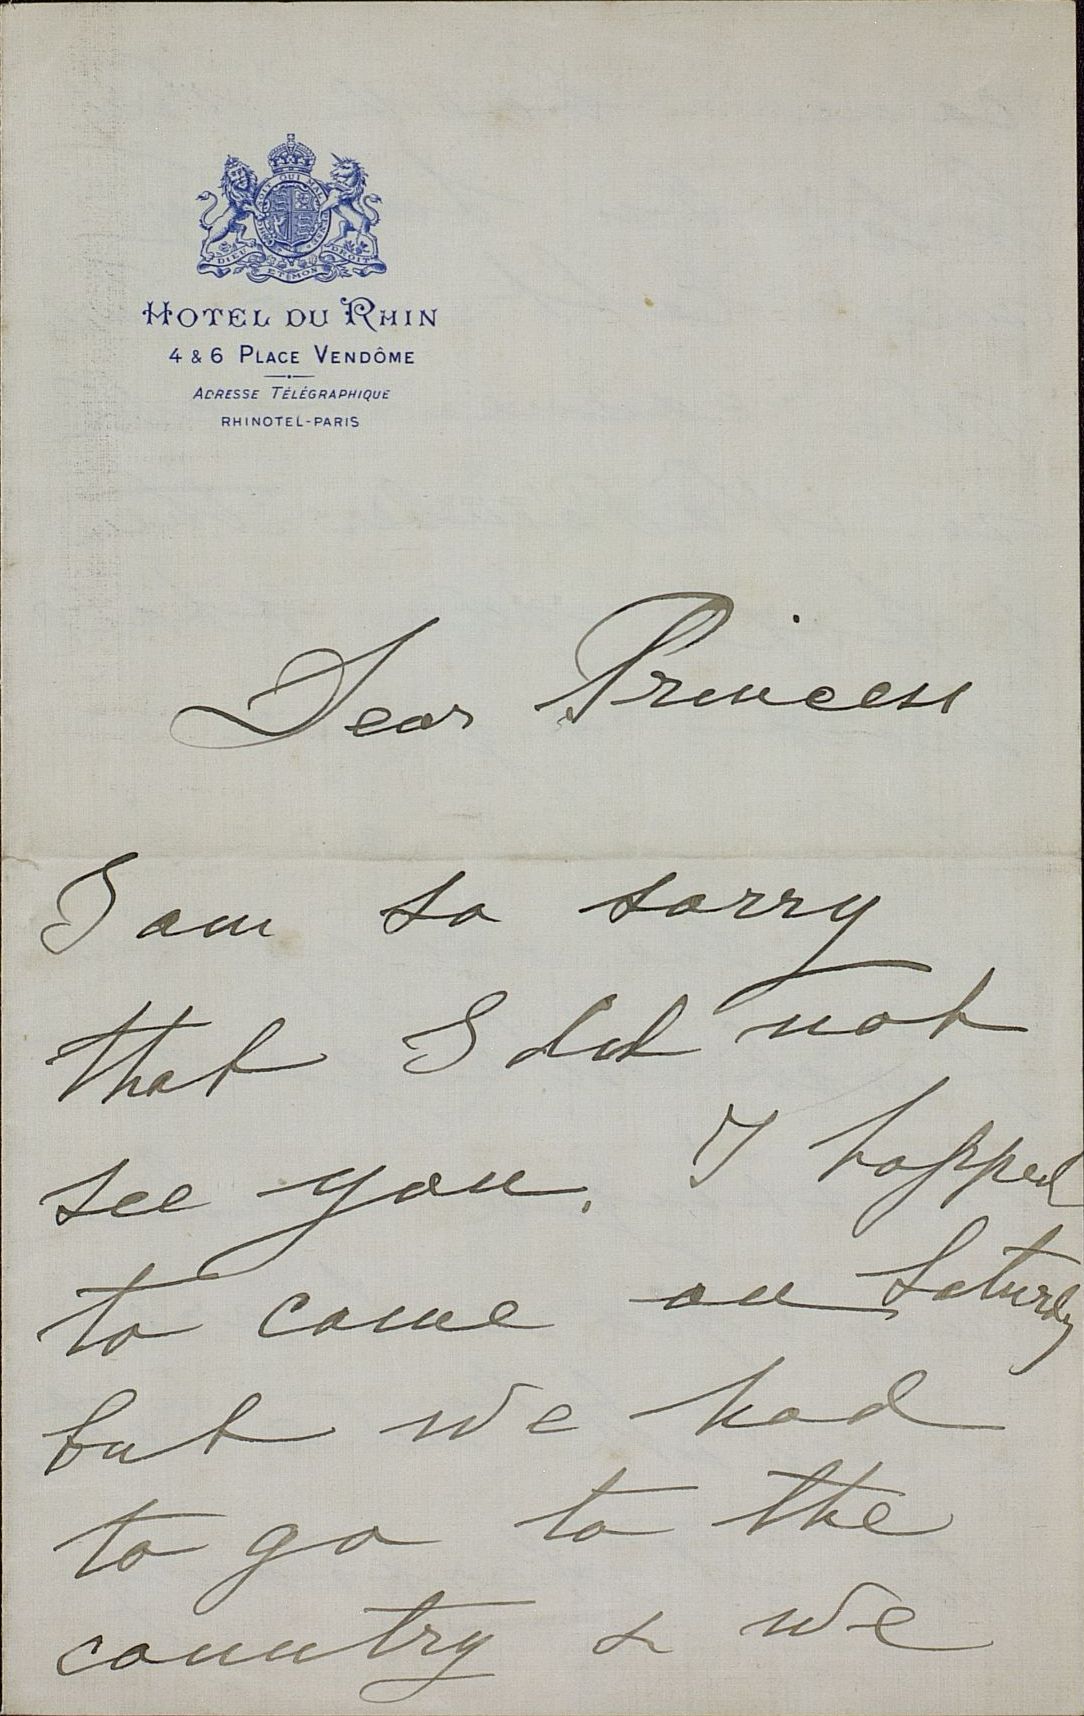 HONI SOIT QUI MAL Y PENSE
DIEU ET MON DROIT
HOTEL DU RHIN
4 & 6 PLACE VENDÔME
ADRESSE TÉLÉGRAPHIQUE
RHINOTEL-PARIS
Dear Princess
I am so sorry
that I did not
see you. I hopped
to come on Saturday
but we had
to go to the
country & we